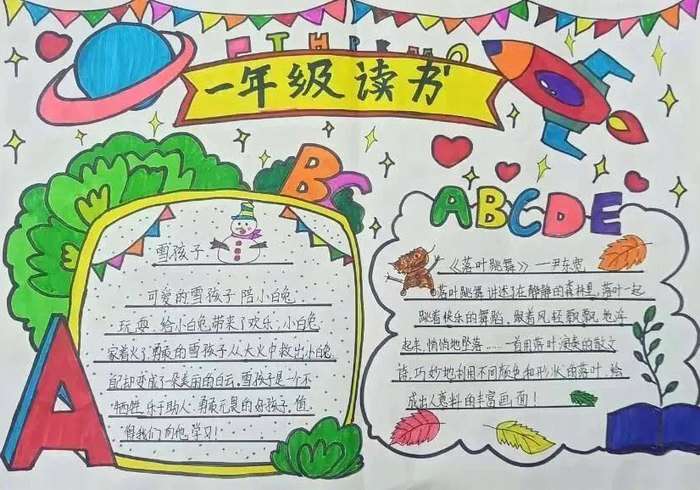 一年级读书
BC
ABCDE
A
雪孩子
可爱的雪孩子陪小白兔
玩耍,给小白兔带来了欢乐,小白兔
家着火了,勇敢的雪孩子从大火中救出小白兔,
自己却变成了一朵美丽的白云,雪孩子是一个不
怕牺牲,乐于助人,勇敢无畏的好孩子,值
得我们向他学习!
《落叶跳舞》——尹东宽
落叶跳舞讲述了在静静的森林里,落叶一起
跳着快乐的舞蹈,跟着风,轻飘飘地浮
起来,悄悄地坠落……一首用落叶演奏的散文
诗,巧妙地利用不同颜色和形状的落叶,绘
成出人意料的丰富画面!